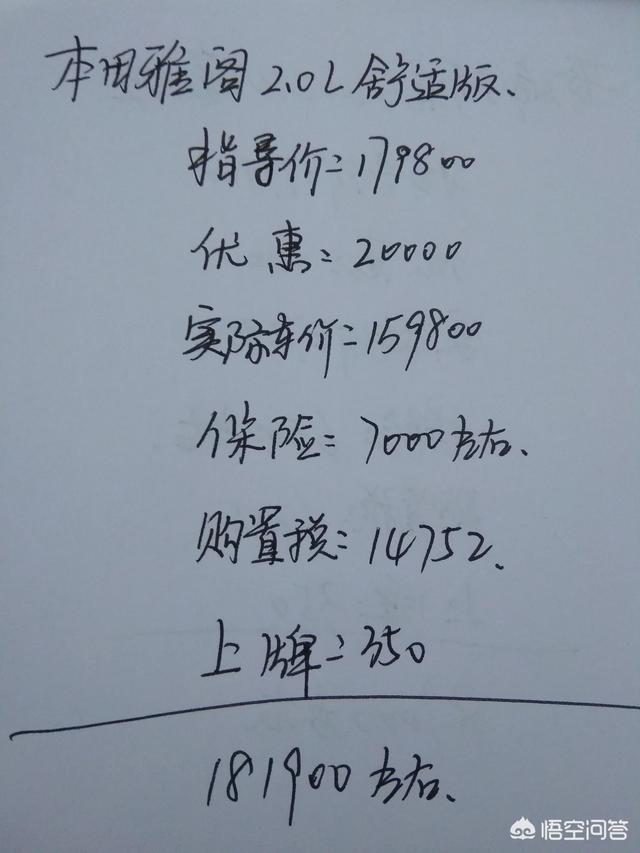 本田雅阁2.0L舒适版、
指导价=179800
优惠=20000
实际车价=159800
保险=7000左右、
购置税=14752、
上牌=350
181900左右、
悟空问答